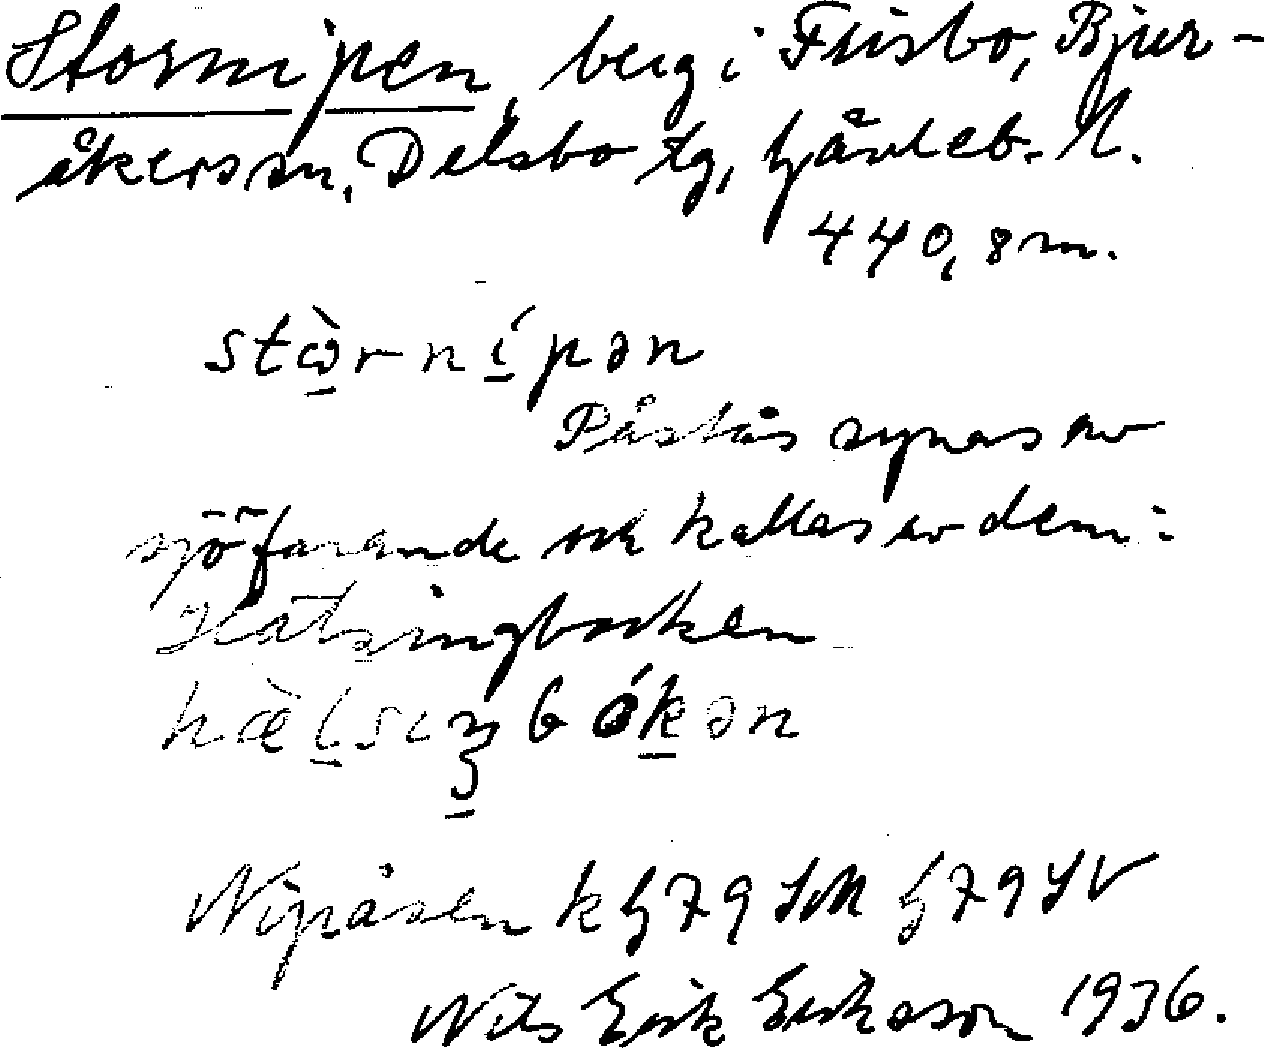 Stornipen, berg i Friisbo, Bjur-
åkers sn, Delsbo tg, Gävleb. l.
440,8 m.
stɷ̀r nípən
Påstås synas av
sjöfarande och kallas av dem:
Hälsingbocken
hæ̀lsıŋbókən
Nipåsen k G 79 SM G 79 SV
Nils Erik Eriksson 1936.